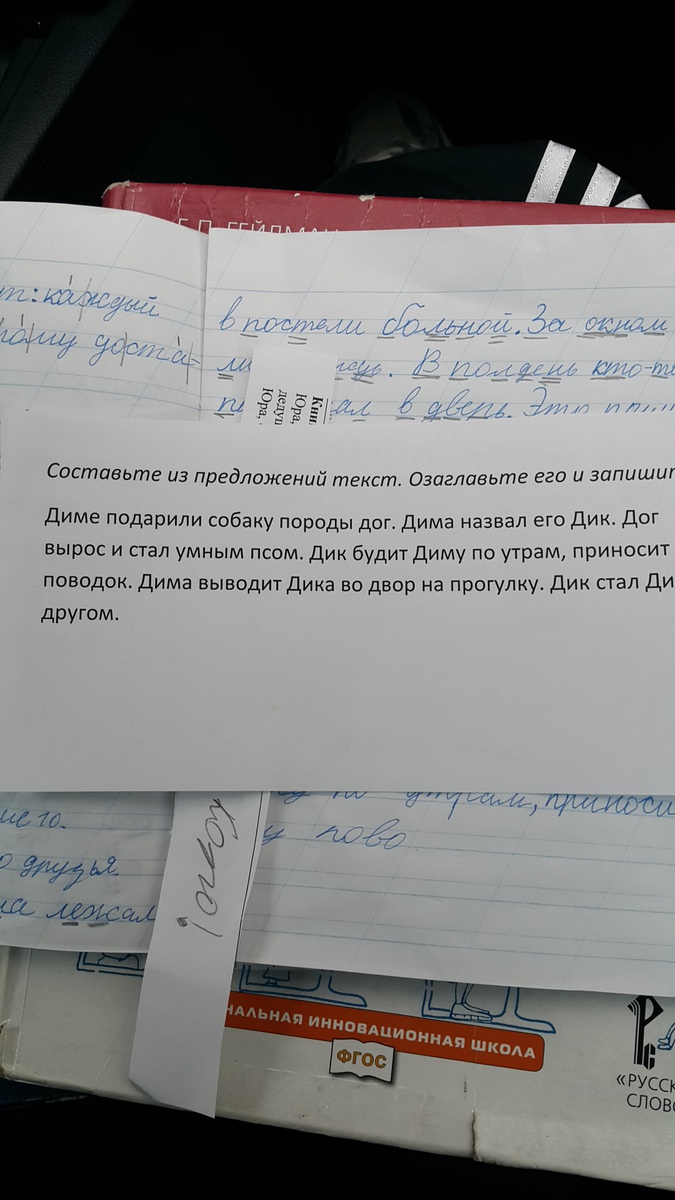 Е.П. ГЕЙДМАН
каждый
доста=
в постели больной. За окном
В полдень кто-то
в дверь. Это
Юра,
Составьте из предложений текст. Озаглавьте его и запишит
Диме подарили собаку породы дог. Дима назвал его Дик. Дог
вырос и стал умным псом. Дик будит Диму по утрам, приносит
поводок. Дима выводит Дика во двор на прогулку. Дик стал Ди
другом.
по утрам, приноси
у пово
друзья.
лежал
НАЛЬНАЯ ИННОВАЦИОННАЯ ШКОЛА
ФГОС
«РУССК
СЛОВО